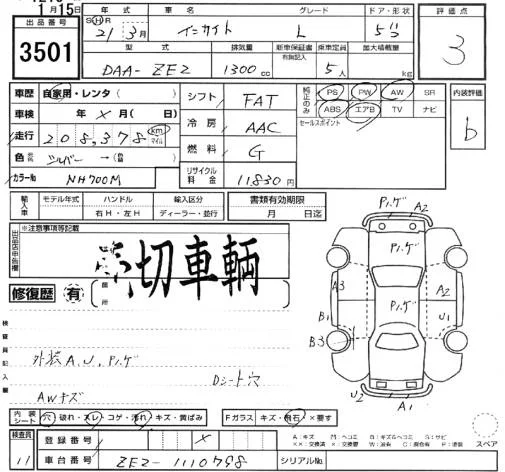 1月15日
出品番号
3501
年式 車名 グレード ドア・形状 評価点
S(H)R 21年 3月 インサイト L 5ドア 3
型式 排気量 新車保証書 有無記入 乗車定員 加大積載量
DAA-ZE2 1300cc 5人 kg
車歴 自家用・レンタ( )
シフト FAT
純正のみ PS PW AW SR
ABS エアB TV ナビ
内装評価 b
車検 年 × 月( 日)
冷房 AAC
セールスポイント
走行 208,378 km マイル
燃料 G
色 シルバー →( )
リサイクル料金 11830円
カラーNo NH700M
輸入車 モデル年式 ハンドル 輸入区分 書類有効期限
右H・左H ディーラー・並行 月 日迄
出品店申告欄 ※注意事項等記載
売切車輌
修復歴 有 箇所
Pハゲ A2
Pハゲ
A3 Pハゲ A2
B1 U1
B3
U2 A1
検査員記入欄
外装A,U,Pハゲ
Dシート穴
AWキズ
内装シート 穴・破れ・スレ・コゲ・汚れ・キズ・黄ばみ Fガラス キズ・飛石・×要す
スペア
検査員 11
登録番号 ×
車台番号 ZE2-1110788 シリアルNo.